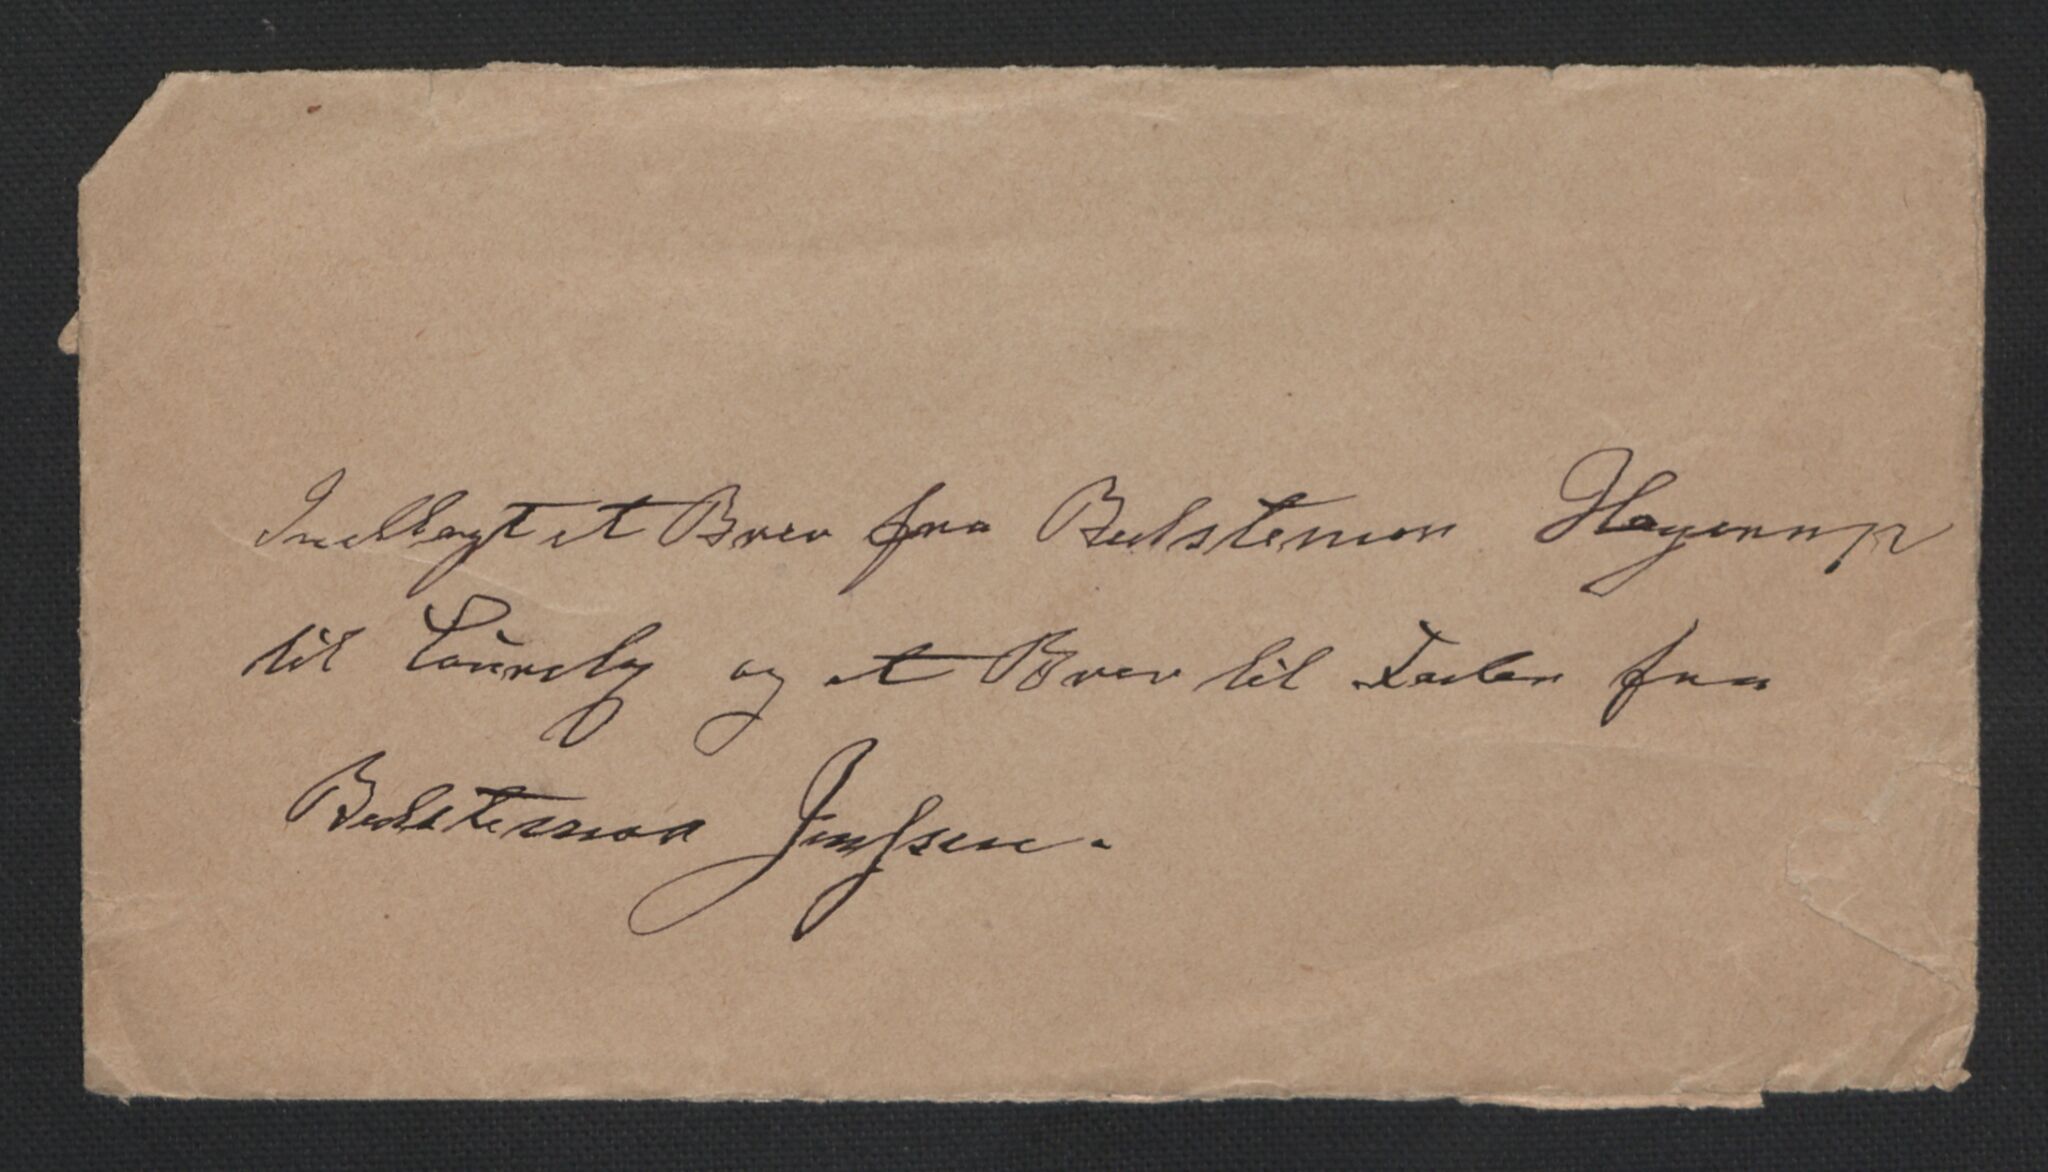 Indlagt et Brev fra Bedstemor Hagerup
til og et Brev til Fader fra
Bedstemor Jenssen.